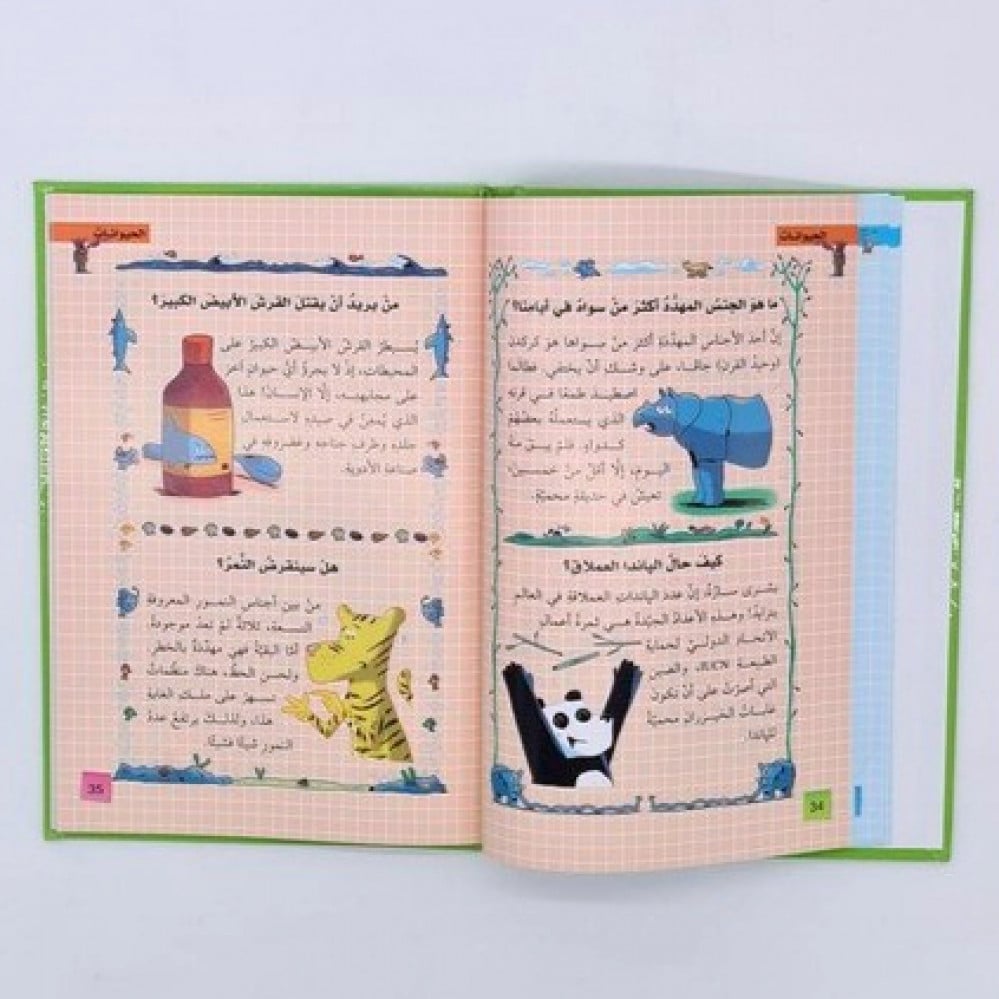 الحيوانات
ما هو الجنس المهدَّد أكثر منْ سواهُ في أيامنا؟
إنَّ أحدَ الأجناس المهدَّدة أكثر منْ سواها هو كركدن
(وحيدُ القرن) جافا، على وشك أنْ يختفي. فطالما
اصطيدَ طمعًا في قرنه
الذي يستعملُهُ بعضُهُمْ
كدواء. فلمْ يبْقَ منهُ
اليوم، إلّا أقلّ منْ خمسين،
تعيشُ في حديقةٍ محميّة.
كيف حالُ الباندا العملاق؟
بشرى سارّة: إنَّ عددَ الباندات العملاقة في العالم
يتزايد! وهذه الأعدادُ الجيّدة هي ثمرةُ أعمال
الاتحاد الدوليّ لحماية
الطبيعة IUCN، والصين
التي أصرّتْ على أنْ تكون
غاباتُ الخيزران محميّة
للباندا.
34
الحيوانات
منْ يريدُ أنْ يقتلَ القرش الأبيض الكبير؟
يُسيطرُ القرش الأبيض الكبيرُ على
المحيطات، إذْ لا يجرؤُ أيُّ حيوانٍ آخرَ
على مجابهته، إلّا الإنسان! هذا
الذي يُمعنُ في صيده لاستعمال
جلده وطرف جناحه وغضروفه في
صناعة الأدوية.
هلْ سينقرضُ النَّمرُ؟
منْ بين أجناس النمور المعروفة
التسعة، ثلاثةٌ لمْ تعدْ موجودةً.
أمّا البقيّةُ فهي مهدّدةٌ بالخطر.
ولحسن الحظّ، هناكَ منظّماتٌ
تسهرُ على ملك الغابة
هذا، ولذلكَ يرتفعُ عددُ
النمور شيئًا فشيئًا.
35